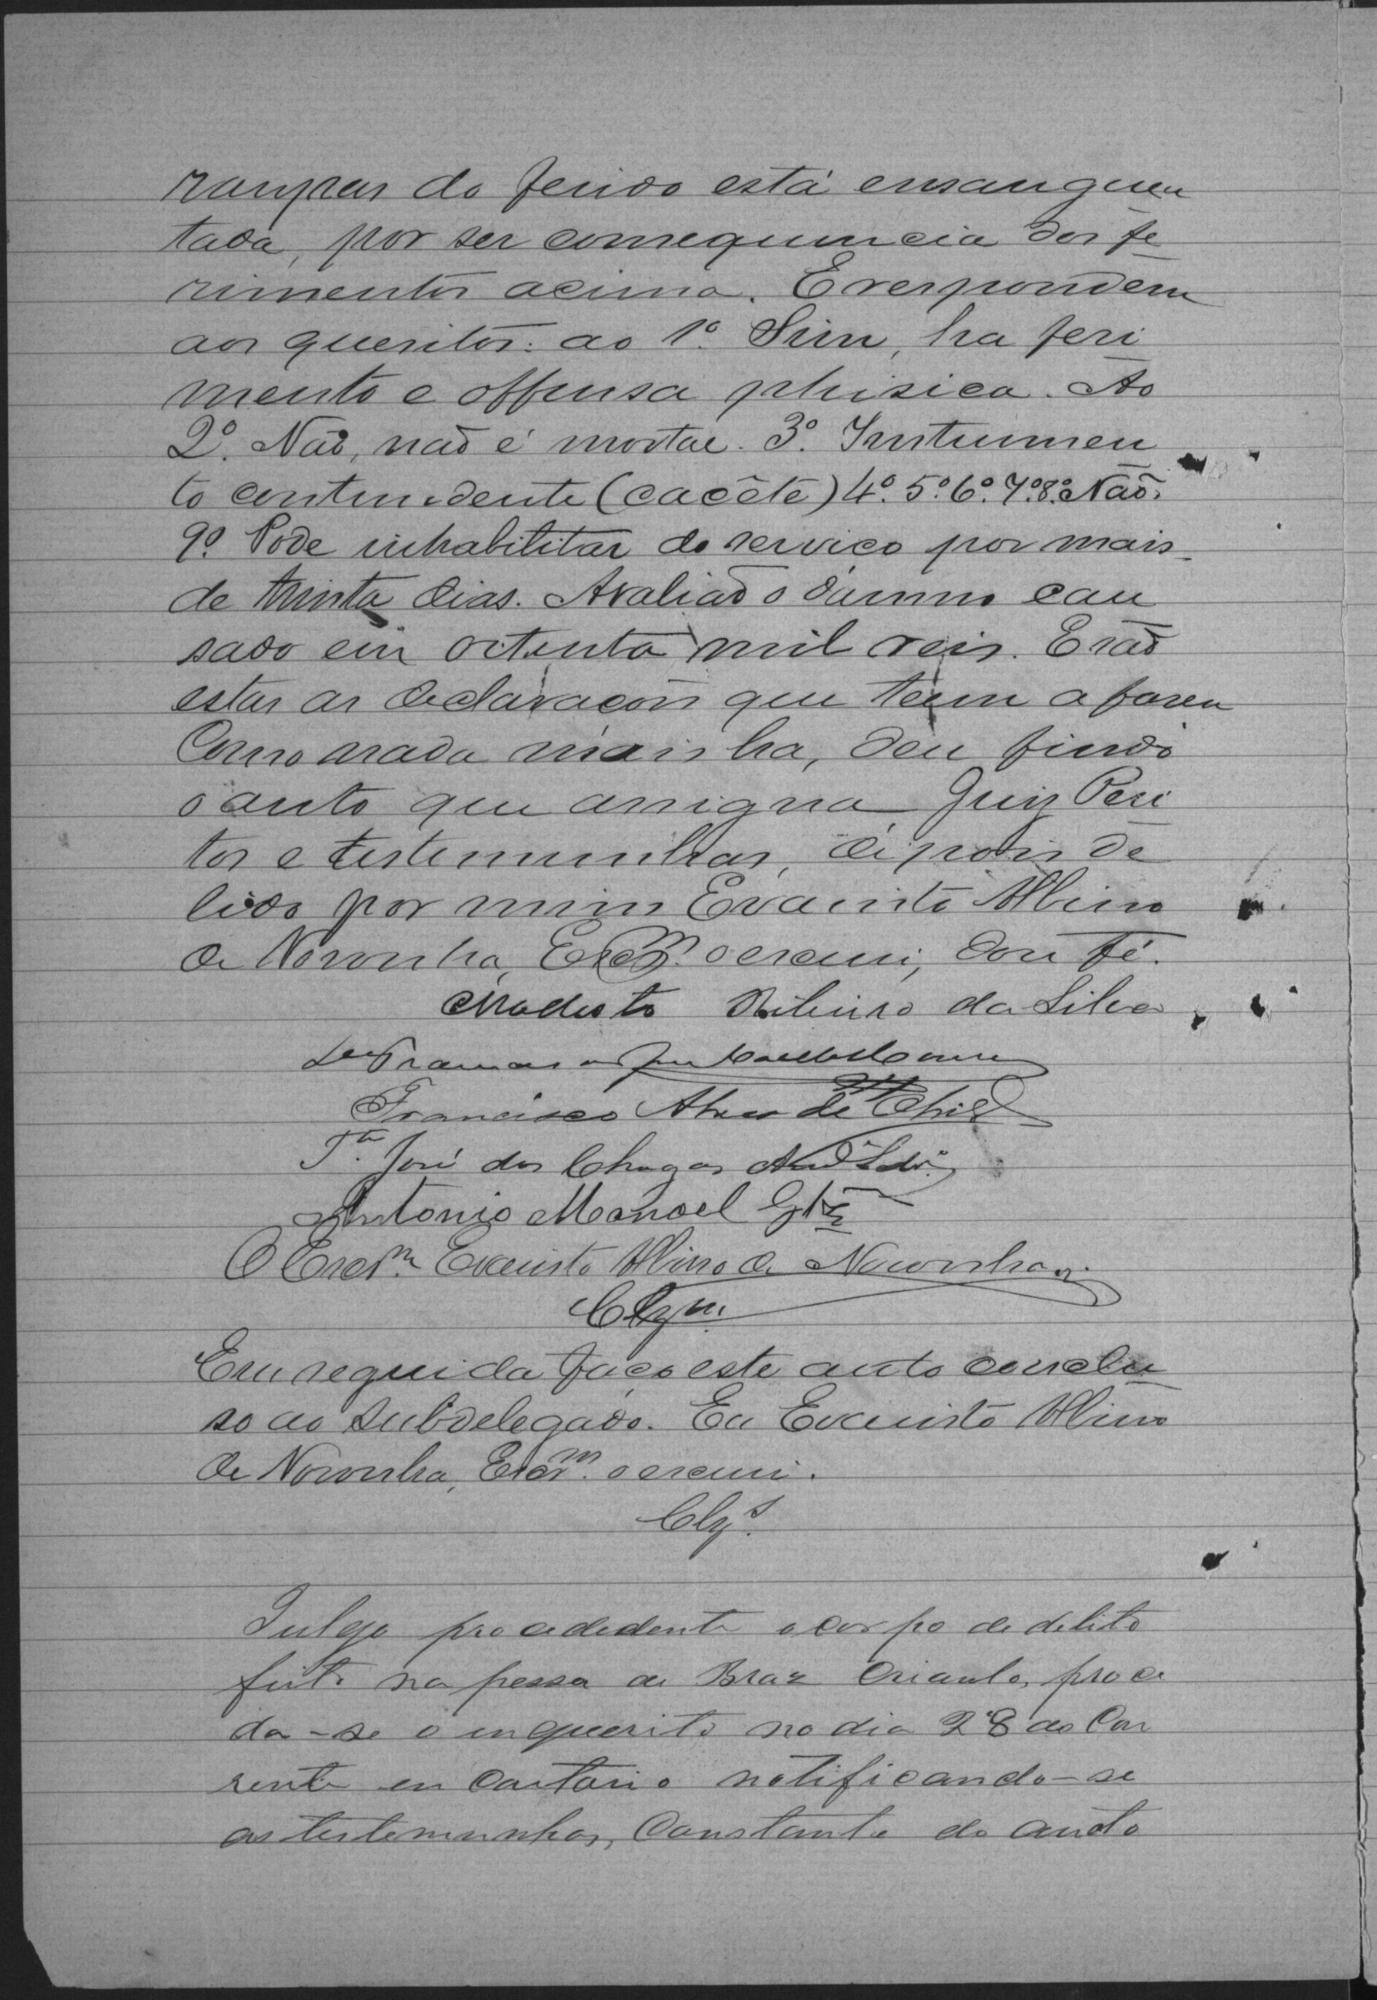 roupas do ferido está ensanguen
tada, por ser consequencia dos fe
rimentos acima. E respondem
aos quesitos: ao 1º. Sim, ha feri
mento e offensa phisica. Ao
2º. Não, não é mortal. 3º. Instrumen
to contundente (cacête) 4º. 5º. 6º. 7º. 8º. Não.
9º. Pode inhabilitar do serviço por mais
de trinta dias. Avalião o damno cau
sado em oitenta mil reis. E são
estas as declarações que teem a fazer
Como nada mais ha, deu findo
o auto que assigna Juiz Peri
tos e testemunhas, depois de
lido por mim Evaristo Albino
de Noronha, Escrm. o escrevi, dou fé.
Modesto Ribeiro da Silva
Francisco Alves de
Ta. José das Chagas
Antonio Manoel
O Escrm. Evaristo Albino de Noronha
Clzm.
Em seguida faço este auto conclu
so ao subdelegado. Eu Evaristo Albino
de Noronha, Escrm. o escrevi.
Clzs.
Julgo procededente o corpo de delito
feito na pessa de Braz proce
da-se o inquerito no dia 28 do Cor
rente em Cartorio notificando-se
as testemunhas, Constante do aucto